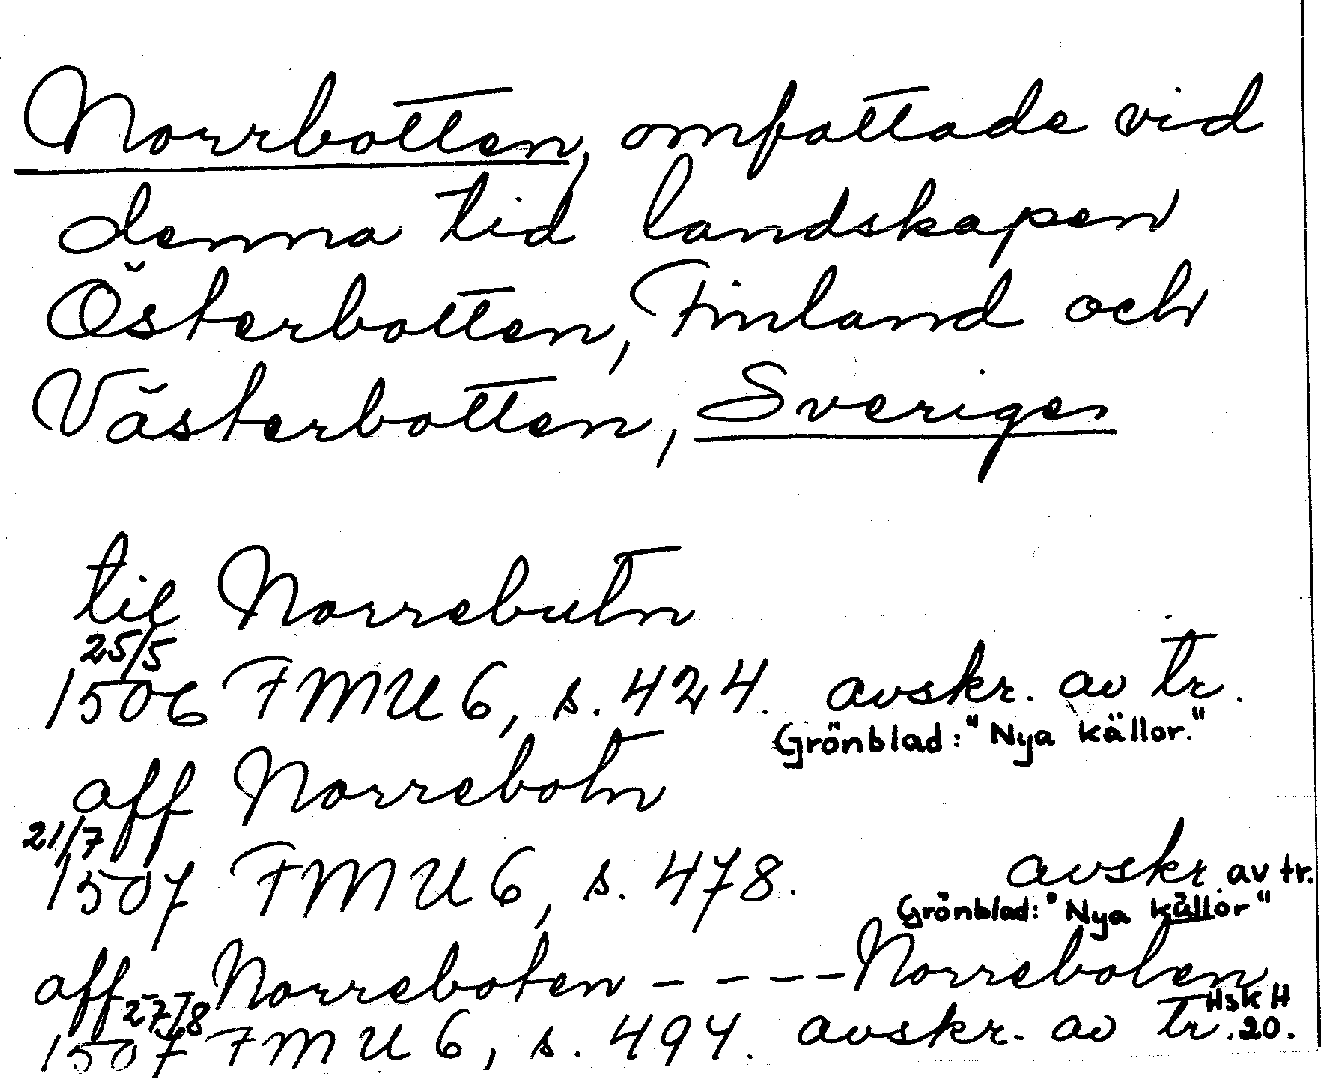 Norrbotten, omfattade vid
denna tid landskapen
Österbotten, Finland och
Västerbotten, Sverige
til Norrebutn
25/5
1506 FMU 6, s. 424. avskr. av tr.
Grönblad: "Nya källor."
aff Norrebotn
21/7
1507 FMU 6, s. 478. avskr. av tr.
Grönblad: "Nya källor"
aff Norreboten - - - - Norrebolen
27/8 Hsk H
1507 FMU 6, s. 494. avskr. av tr. 20.